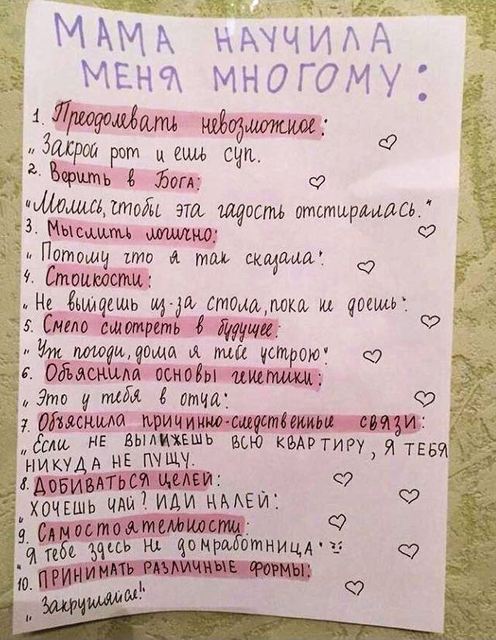 МАМА НАУЧИЛА
МЕНЯ МНОГОМУ:
1. Преодолевать невозможное:
„Закрой рот и ешь суп.
2. Верить в Бога:
„Молись, чтобы эта гадость отстиралась."
3. Мыслить логично:
„Потому что я так сказала".
4. Стойкости:
„Не выйдешь из-за стола, пока не доешь".
5. Смело смотреть в будущее:
„Уж погоди, дома я тебе устрою"
6. Объяснила основы генетики:
„Это у тебя в отца".
7. Объяснила причинно-следственные связи:
„Если не ВЫЛИЖЕШЬ ВСЮ КВАРТИРУ, Я ТЕБЯ
НИКУДА НЕ ПУЩУ.
8. ДОБИВАТЬСЯ ЦЕЛЕЙ:
„ХОЧЕШЬ ЧАЙ? ИДИ НАЛЕЙ".
9. Самостоятельности:
„Я тебе здесь не домработница"
10. ПРИНИМАТЬ РАЗЛИЧНЫЕ ФОРМЫ:
„Закругляйся!"